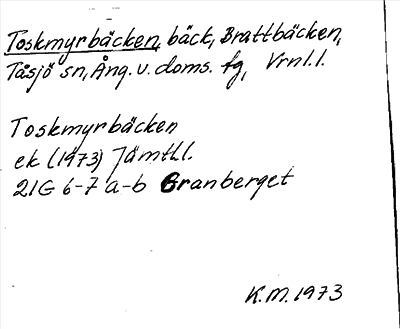 Toskmyrbäcken, bäck, Brattbäcken,
Tåsjö sn, Ång. v. doms. fg, Vrnl.l.
Toskmyrbäcken
ek (1973) Jämtl.l.
21G 6-7 a-b Granberget
K.M. 1973